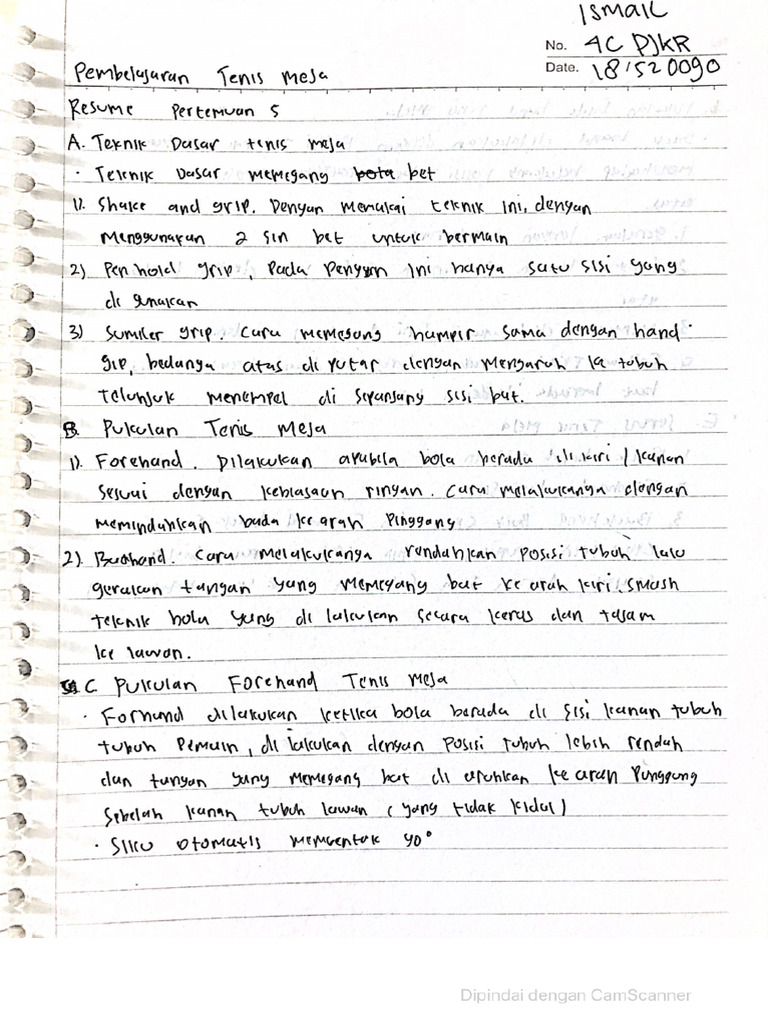 ISMAIL
No. 4C PJKR
Date. 181520090
Pembelajaran Tenis meja
Resume Pertemuan 5
A. Teknik Dasar tenis meja
· Teknik Dasar memegang bola bet
1). Shake and grip. Dengan memakai teknik ini, dengan
Menggunakan 2 sisi bet untuk bermain
2) Pen hold grip, Pada Pengyn ini hanya satu sisi yang
di gunakan
3) Sumiler grip. Cara memegang hampir sama dengan hand
gip, bedanya atas di putar dengan mengarah ke tubuh
telunjuk menempel di sepanjang sisi bat.
B. Pukulan Tenis Meja
1). Forehand. Dilakukan apabila bola berada di kiri / kanan
sesuai dengan kebiasaan ringan. Cara melakukanya dengan
memindahkan bada ke arah Pinggang
2). Backhand. Cara melakukanya rendahkan Posisi tubuh lalu
gerakan tangan yang memegang bat ke arah kiri. smash
teknik bola yang di lakukan secara keras dan tajam
ke lawan.
C. Pukulan Forehand Tenis Meja
· Forhand dilakukan ketika bola berada di sisi kanan tubuh
tubuh Pemain, di lakukan dengan Posisi tubuh lebih rendah
dan tangan yang memegang bat di arahkan ke arah Punggung
Sebelah kanan tubuh lawan (yang tidak kidal)
· Siku otomatis membentuk 90°
Dipindai dengan CamScanner